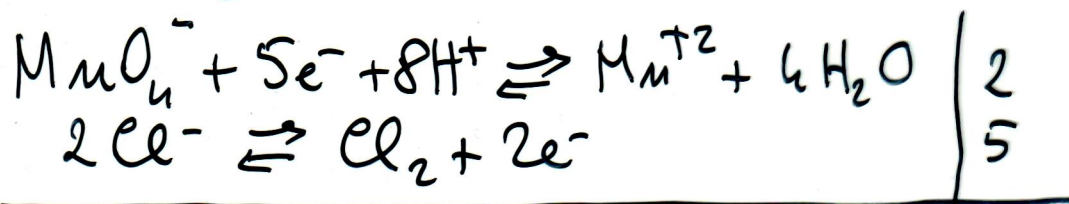 MnO₄⁻ + 5e⁻ + 8H⁺ ⇌ Mn⁺² + 4H₂O | 2
2Cl⁻ ⇌ Cl₂ + 2e⁻ | 5